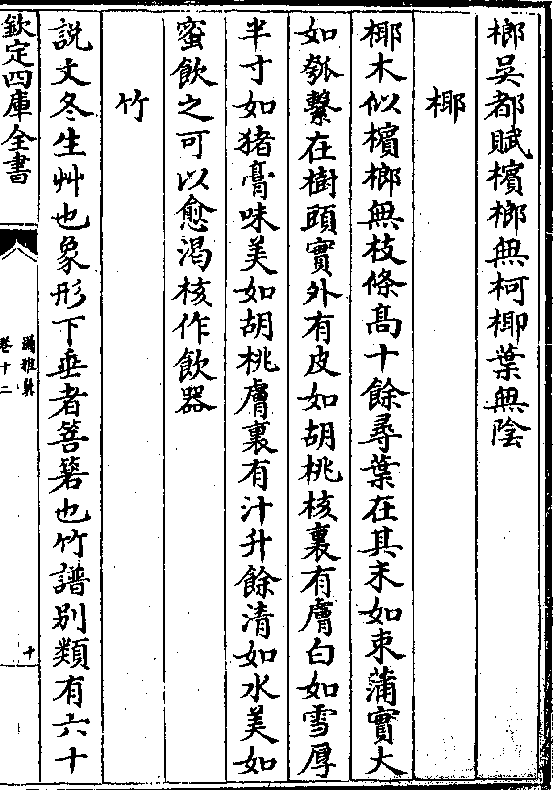 榔吳都賦檳榔無柯椰葉無陰
椰
椰木似檳榔無枝條髙十餘尋葉在其末如束蒲實大
如瓠繫在樹頭實外有皮如胡桃核裏有膚白如雪厚
半寸如猪膏味美如胡桃膚裏有汁升餘清如水美如
蜜飲之可以愈渴核作飲器
竹
説文冬生艸也象形下垂者箁箬也竹譜别類有六十
欽定四庫全書
爾雅翼
卷十二
十